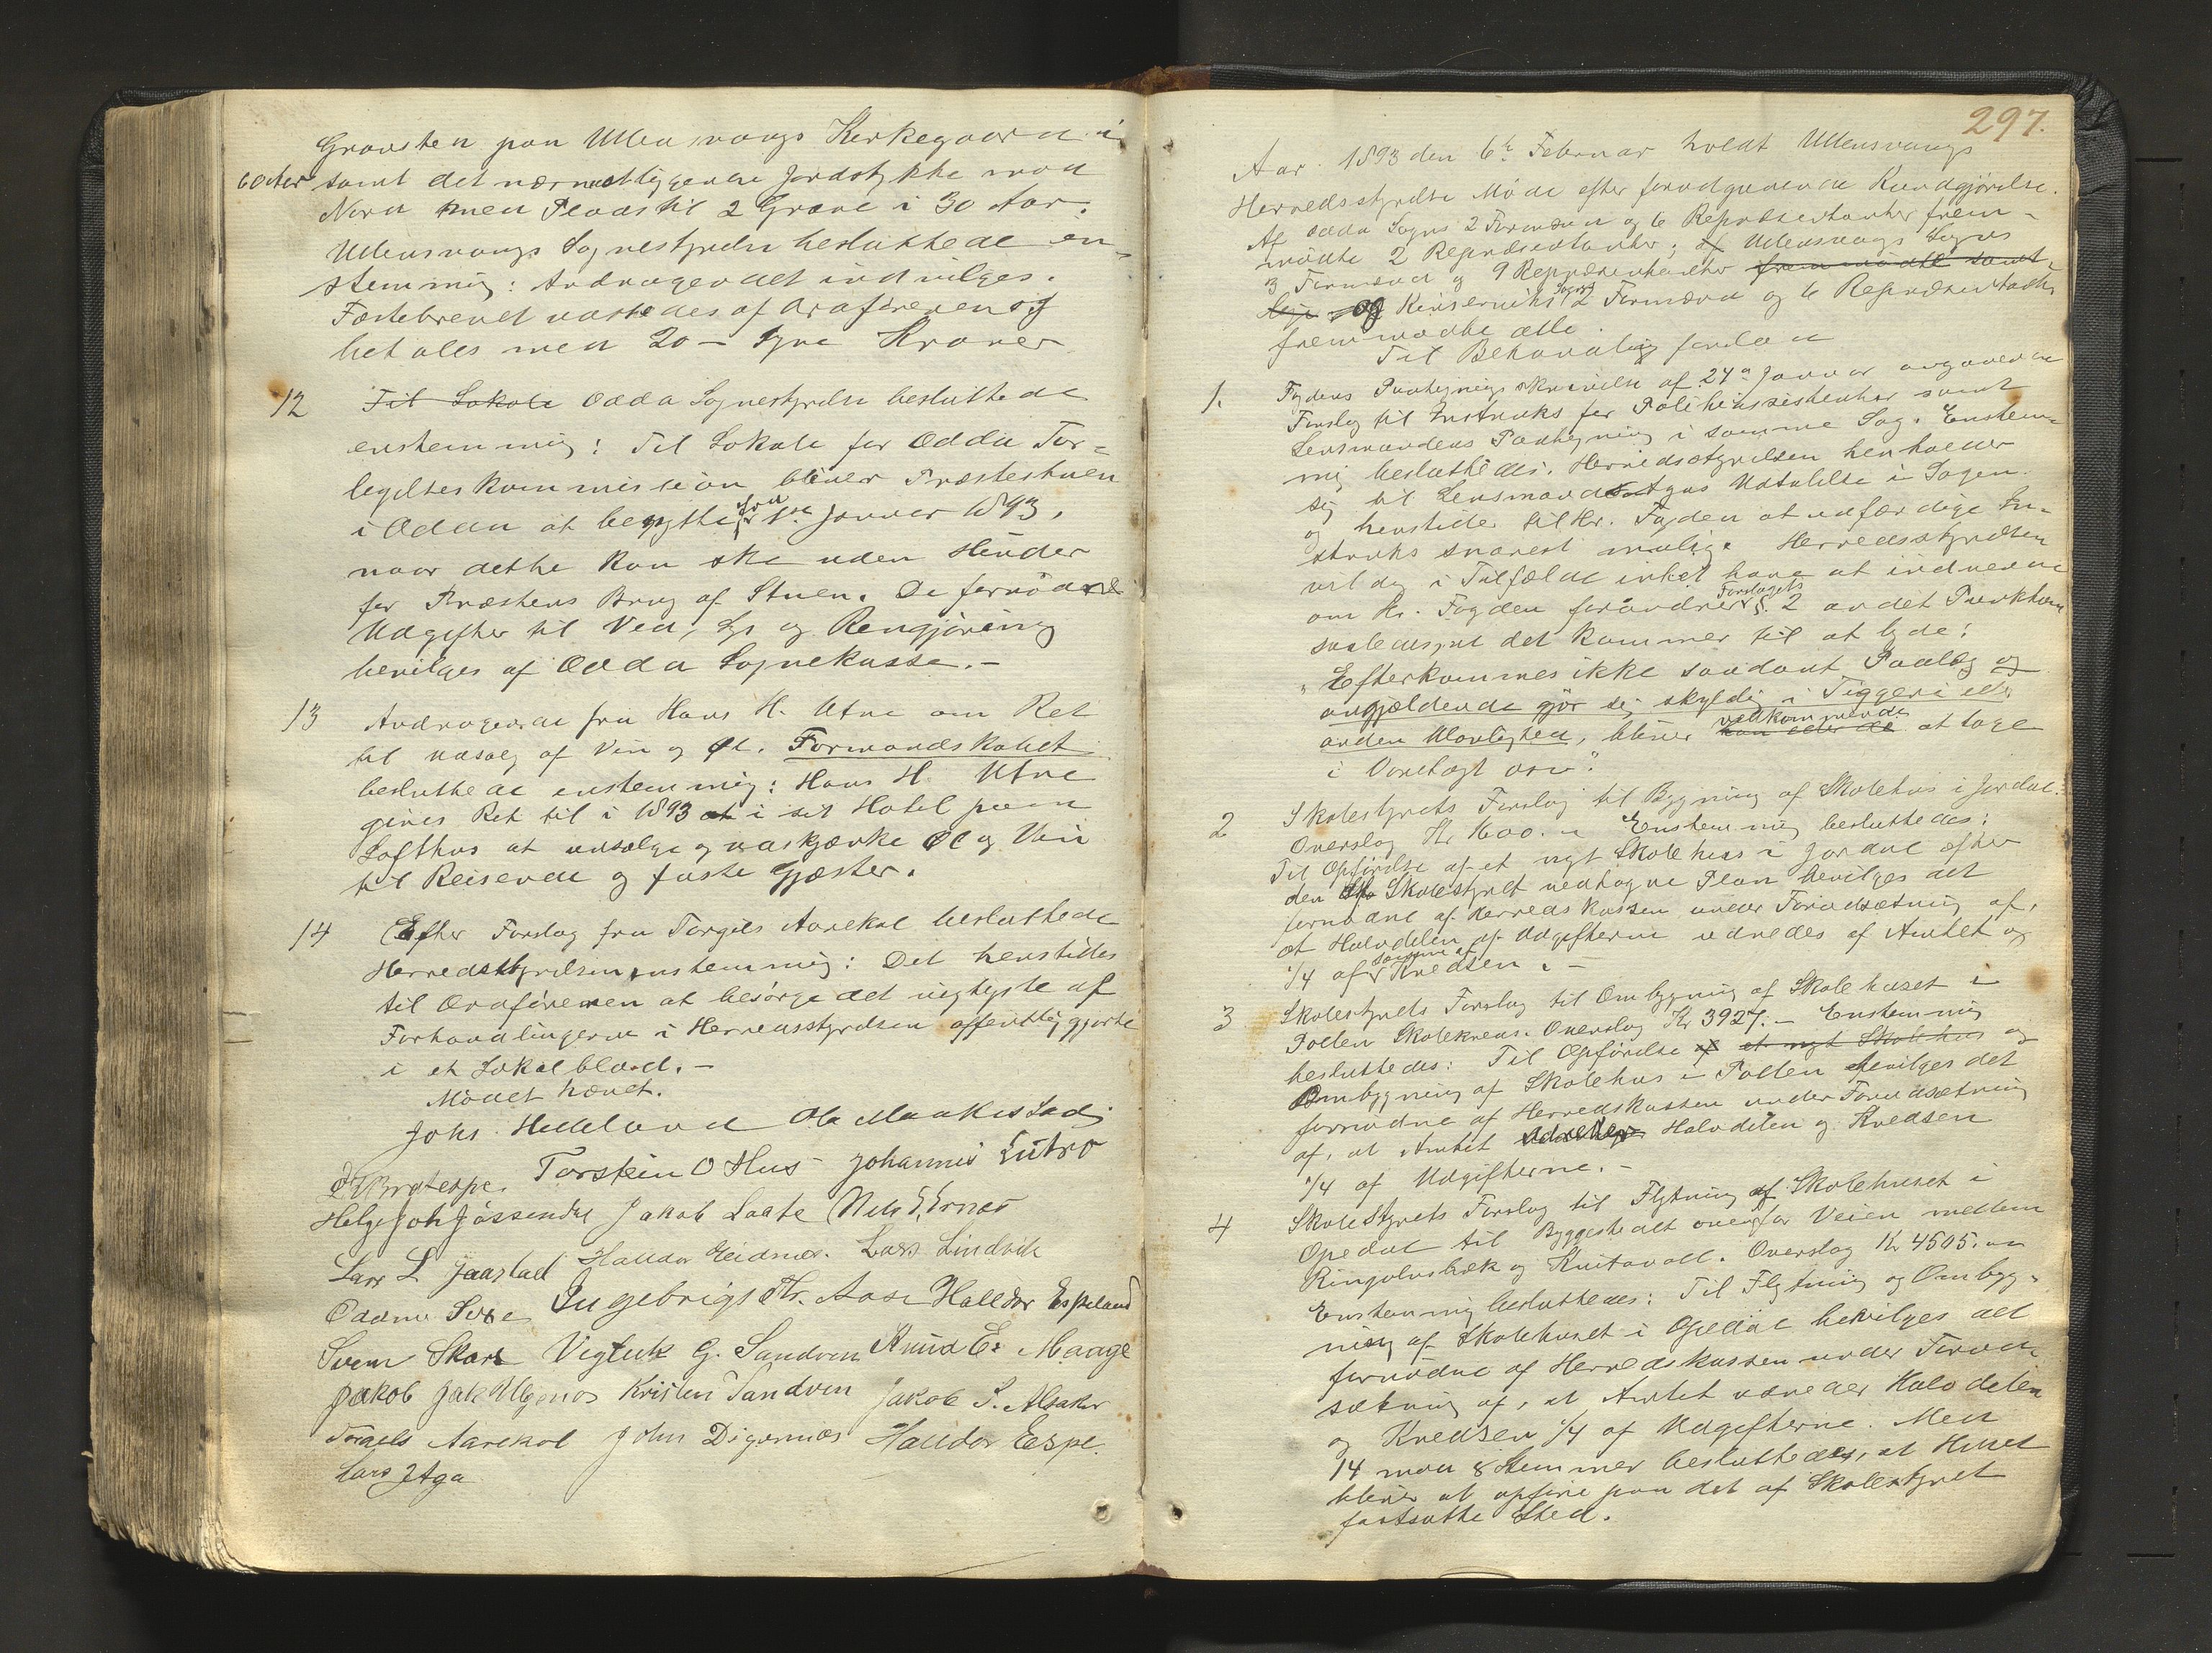 Gravsten paa Ullensvangs Kirkegaard i
60 Aar samt det nærmestliggende Jordstykke mod
Nord med Plads til 2 Grave i 30 Aar.
Ullensvangs Sognestyrelse besluttede en-
stemmig: Andragendet indvilges.
Fæstebrevet udstedes af Ordføreren og
betales med 20 - tyve Kroner
12 Til Lokale Odda Sognestyrelse besluttede
enstemmig: Til Lokale for Odda For-
legelseskommission bliver Præstestuen
i Odda at benytte fra 1ste Januar 1893,
naar dette kan ske uden Hinder
for Præstens Brug af Stuen. De fornødne
Udgifter til Ved, Lys og Rengjøring
bevilges af Odda Sognekasse. -
13 Andragende fra Hans H. Utne om Ret
til Udsalg af Vin og Øl. Formandskabet
besluttede enstemmig: Hans H. Utne
gives Ret til i 1893 at i sit Hotel paa
Lofthus at udsælge og udskjænke Øl og Vin
til Reisende og faste Gjæster.
14 Efter Forslag fra Torgils Aarekol besluttede
Herredsstyrelsen enstemmig: Det henstilles
til Ordføreren at besørge det vigtigste af
Forhandlingerne i Herredsstyrelsen offentliggjorte
i et Lokalblad. -
Mødet hævet.
Johs. Helland Ola Maakestad
Torstein O Hus Johannis Lutro
Helge Joh Jøssendal Jakob Laate Nels
Lars L Jaastad Halldor Eidnes. Lars Lindvik
Oddmu Sexe Ingebrigt Th. Aase Halldor Espeland
Svein Skare Vigleik G. Sandven Knud E. Maage
Jakob Kristen Sandven Jakob S. Alsaker
Torgils Aarekol John Digernæs Halldor Espe.
Lars J Aga
297.
Aar 1893 den 6te Februar holdt Ullensvangs
Herredsstyrelse Møde efter forudgaaende Kundgjørelse.
Af Odda Sogns 2 Formænd og 6 Repræsentanter frem-
mødte 2 Repræsentanter; af Ullensvangs Sogns
3 Formænd og 9 Repræsentanter fremmødte samt-
lige og Kinserviks Sogns 2 Formænd og 6 Repræsentanter
fremmødte alle.
Til Behandling forelaa
1. Fogdens Paategningsskrivelse af 24de Januar angaaende
Forslag til Instruks for Politiassistenter samt
Lensmandens Paategning i samme Sag. Enstem-
mig besluttedes: Herredsstyrelsen henholder
sig til Lensmand Agas Udtalelse i Sagen
og henstiller til Hr. Fogden at udfærdige In-
struks snarest mulig. Herredsstyrelsen
vil dog i Tilfælde intet have at indvende
om Hr. Fogden forandrer Forslagets §. 2 andet Punktum
saaledes, at det kommer til at lyde:
"Efterkommes ikke saadant Paalæg og
angjældende gjør sig skyldig i Tiggeri eller
anden Ulovlighed, bliver vedkommende han eller de at tage
i Varetægt osv."
2 Skolestyrets Forslag til Bygning af Skolehus i Jordal.
Overslag Kr. 1600. - Enstemmig besluttedes:
Til Opførelse af et nyt Skolehus i Jordal efter
den af Skolestyret vedtagne Plan bevilges det
fornødne af Herredskassen under Forudsætning af,
at Halvdelen af Udgifterne udredes af Amtet og
1/4 af Kredsen. -
3 Skolestyrets Forslag til Ombygning af Skolehuset i
Pollen Skolekreds. Overslag Kr 3927. - Enstemmig
besluttedes: Til Opførelse af et nyt Skolehus og
Ombygning af Skolehus i Pollen bevilges det
fornødne af Herredskassen under Forudsætning
af, at Amtet udreder Halvdelen og Kredsen
1/4 af Udgifterne. -
4 Skolestyrets Forslag til Flytning af Skolehuset i
Opedal til Byggested ovenfor Veien mellem
Ringolvsbæk og Knitavoll. Overslag Kr 4505. -
Enstemmig besluttedes: Til Flytning og Ombyg-
ning af Skolehuset i Opedal bevilges det
fornødne af Herredskassen under Forud-
sætning af, at Amtet udreder Halvdelen
og Kredsen 1/4 af Udgifterne. Med
14 mod 8 Stemmer besluttedes, at Huset
bliver at opføre paa det af Skolestyret
fastsatte Sted.